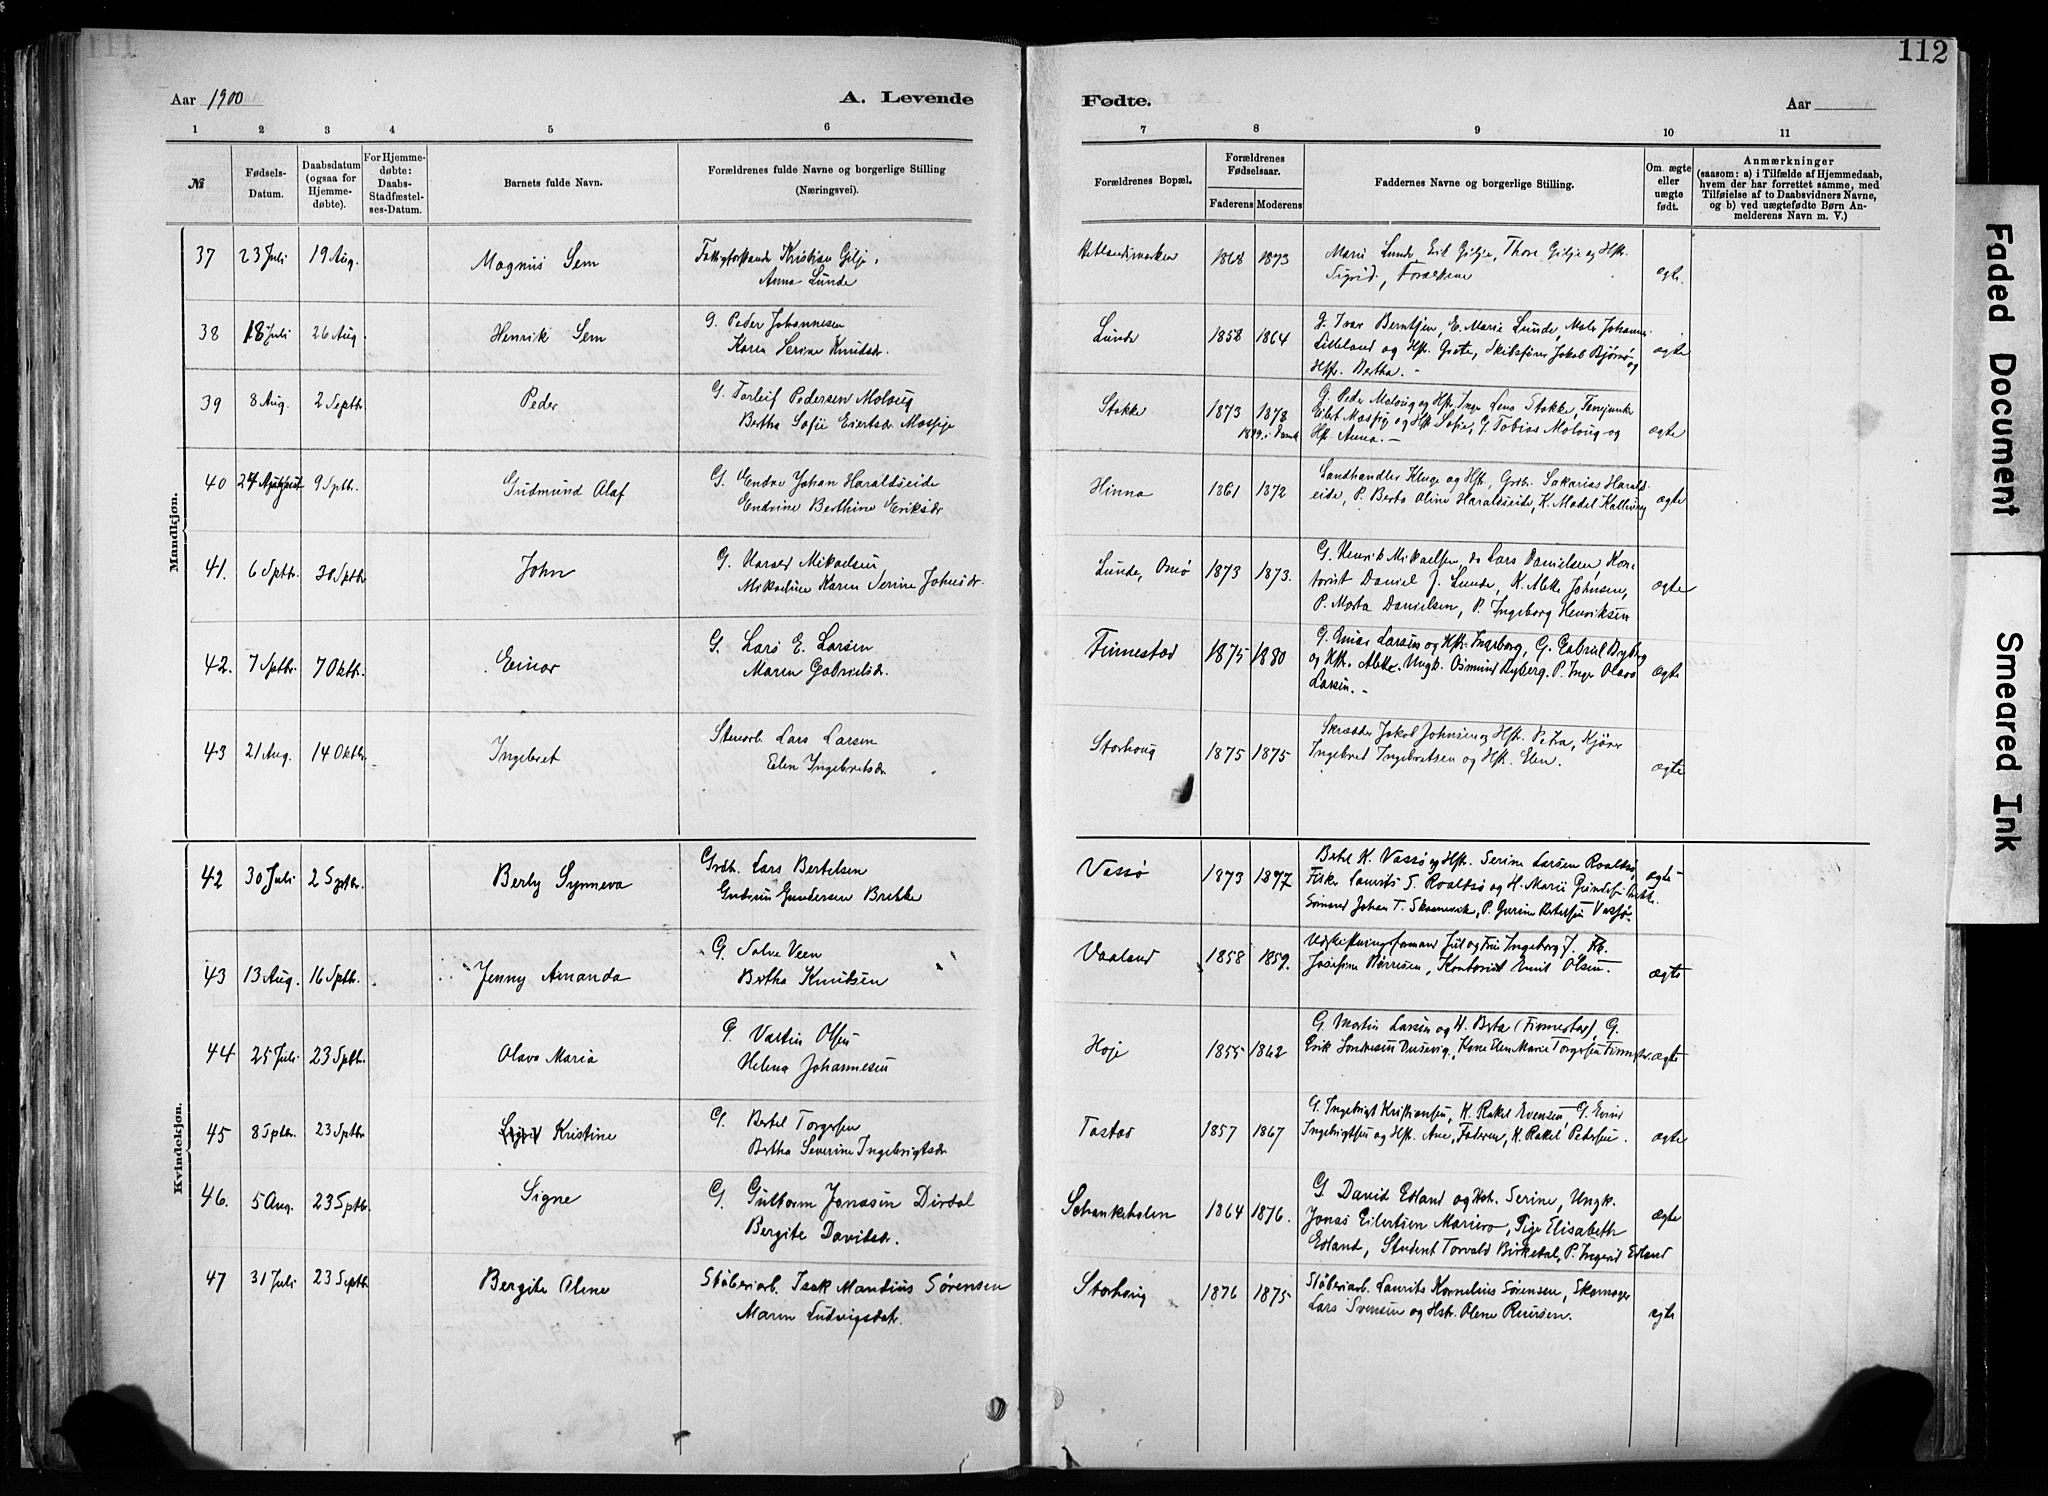 111
112
Aar 1900
A. Levende
Fødte.
Aar
1 2 3 4 5 6 7 8 9 10 11
№
Fødsels-
Datum.
Daabsdatum
(ogsaa for
Hjemme-
døbte).
For Hjemme-
døbte:
Daabs-
Stadfæstel-
ses-Datum.
Barnets fulde Navn.
Forældrenes fulde Navne og borgerlige Stilling
(Næringsvei).
Forældrenes Bopæl.
Forældrenes
Fødselsaar.
Faderens Moderens
Faddernes Navne og borgerlige Stilling.
Om ægte
eller
uægte
født.
Anmærkninger
(saasom: a) i Tilfælde af Hjemmedaab,
hvem der har forrettet samme, med
Tilføielse af to Daabsvidners Navne,
og b) ved uægtefødte Børn An-
melderens Navn m. V.)
Mandkjøn.
37 23 Juli 19 Aug. Magnus Sem
Kristian Gilje,
Anna Lunde
Hetlandsmarken 1868 1873
Marie Lunde, Gilje, Thore Gilje og Hst.
Sigrid, Forældrene
ægte.
38 18 Juli 26 Aug. Henrik Sem
G. Peder Johannesen
Karen Serine Knudsdr.
Lunde 1858 1864
G. Ivar Berntsen, E. Marie Lunde, Johannes
Lilleland og Hst. Grete, Skibsfører Jakob Bjørnø og
Hst. Bertha.
ægte
39 8 Aug. 2 Septbr. Peder
G. Torleif Pedersen Molaug
Bertha Sofie Eiertsdr.
Stokke 1873 1878
G. Peder Molaug og Hst. Inger Lena Stokke,
og Hst. Sofie, G. Tobias Molaug og
Hst. Anna.
ægte
40 24 August 9 Sptbr. Gudmund Olaf
G. Endre Johan Haraldseide
Endrine Berthine Eriksdr
Hinna 1861 1872
Landhandler Kluge og Hst. Grbr. Sakarias Harald-
seide, P. Berta Oline Haraldseide, K.
ægte
41. 6 Sptbr. 30 Sptbr John
G. Mikaelsen
Mikaeline Karen Serine Johnsdr.
Lunde, Omø 1873 1873.
G. Henrik Mikaelsen, do Lars Danielsen, Kon-
torist Daniel J. Lunde, K. Alette Johnsen,
P. Marta Danielsen, P. Ingeborg Henriksen
ægte
42. 7 Sptbr. 7 Oktbr. Einar
G. Lars E. Larsen
Maren Gabrielsdr.
Finnestad 1875 1880
G. Larsen og Hst. Ingeborg, G. Gabriel Byberg
og Hst. Alette. Ungk. Osmund Byberg. P. Inge Olava
Larsen.
ægte
43 21 Aug. 14 Oktbr. Ingebret
Stenarb. Lars Larsen
Elen Ingebretsdr
Storhoug 1875 1875
Skrædder Jakob Johnsen og Hst. Petra, Kjører
Ingebret Ingebretsen og Hst. Elen.
ægte
Kvindekjøn.
42 30 Juli 2 Sptbr. Berly Synneva
Grdbr. Lars Bertelsen
Gudrun Gundersen Brekke
Vassø 1873 1877
Bertel K. Vassø og Hst. Serine Larsen Roaltsø,
Fisker Laurits S. Roaltsø og H. Marie
Sømand Johan T. Skarnevik, P. Gurine Bertelsen Vassø.
ægte
43 13 Aug. 16 Sptbr. Jenny Amanda
G. Salve Veen
Bertha Knutsen
Vaaland 1858 1859.
Juel og Fru Ingeborg J.
Josefine Børresen, Kontorist Emil Olsen.
ægte
44 25 Juli 23 Sptbr. Olava Maria
G. Vastin Olsen
Helena Johannesen
Hoje 1855 1862
G. Martin Larsen og H. Berta (Finnestad), G.
Erik Dusevig, Kone Elen Marie Torgersen
ægte
45 8 Sptbr. 23 Sptbr Kristine
G. Bertel Torgersen
Bertha Severine Ingebrigtsdr
Tastad 1857 1867
G. Ingebrigt Kristiansen, K. Rakel Evensen, G. Evind
Ingebrigtsen og Hst. Ane, Faderen, K. Rakel Pedersen.
ægte
46. 5 Aug. 23 Sptbr. Signe
G. Guttorm Jonasen Dirdal
Bergite Davidsdr.
Schankeholen 1864 1876.
G. David Edland og Hst. Serine, Ungk.
Jonas Eilertsen Mariero, Pige Elisabeth
Edland, Student Torvald Birkedal, P. Ingerid Edland
ægte
47 31 Juli 23 Septbr Bergite Oline
Støberiarb. Isak Mandius Sørensen
Maren Ludvigsdatr.
Storhoug 1876 1875
Støberiarb. Laurits Kornelius Sørensen, Skomager
Lars Svensen og Hstr. Olene Reiersen.
ægte
Faded Document
Smeared Ink